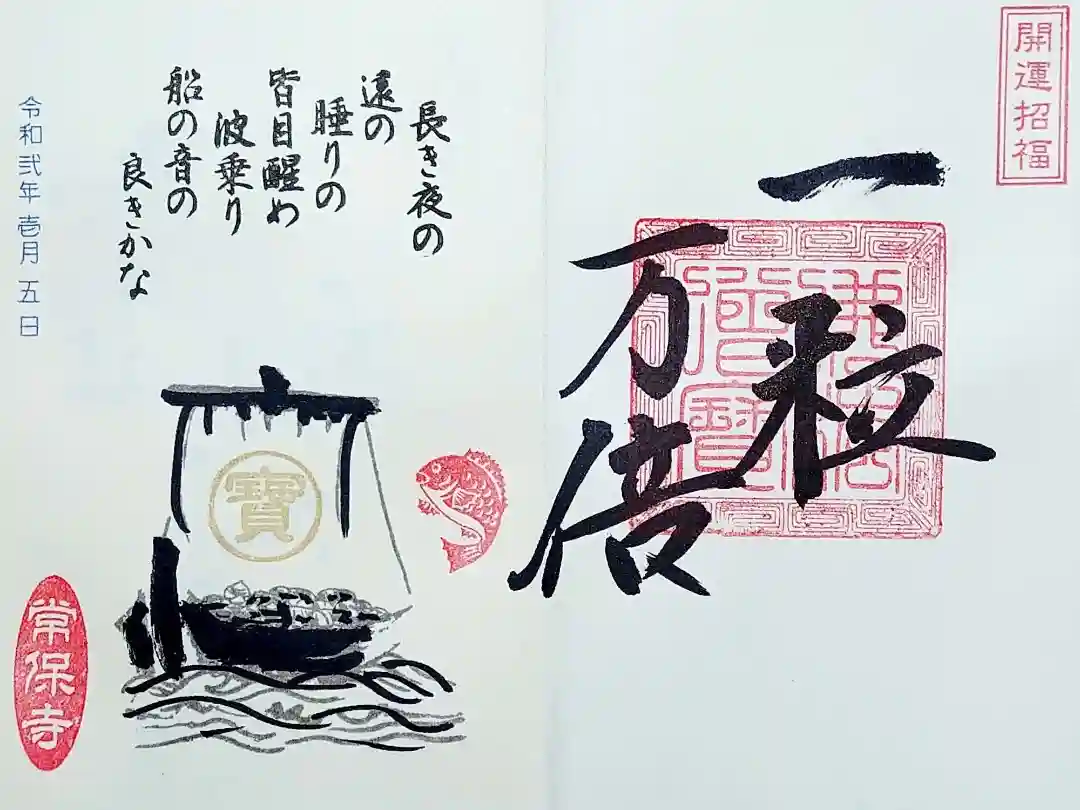 開運招福
一粒
万倍
佛法
僧寶
長き夜の
遠の
睡りの
皆目醒め
波乗り
船の音の
良きかな
寶
令和弐年壱月五日
常保寺